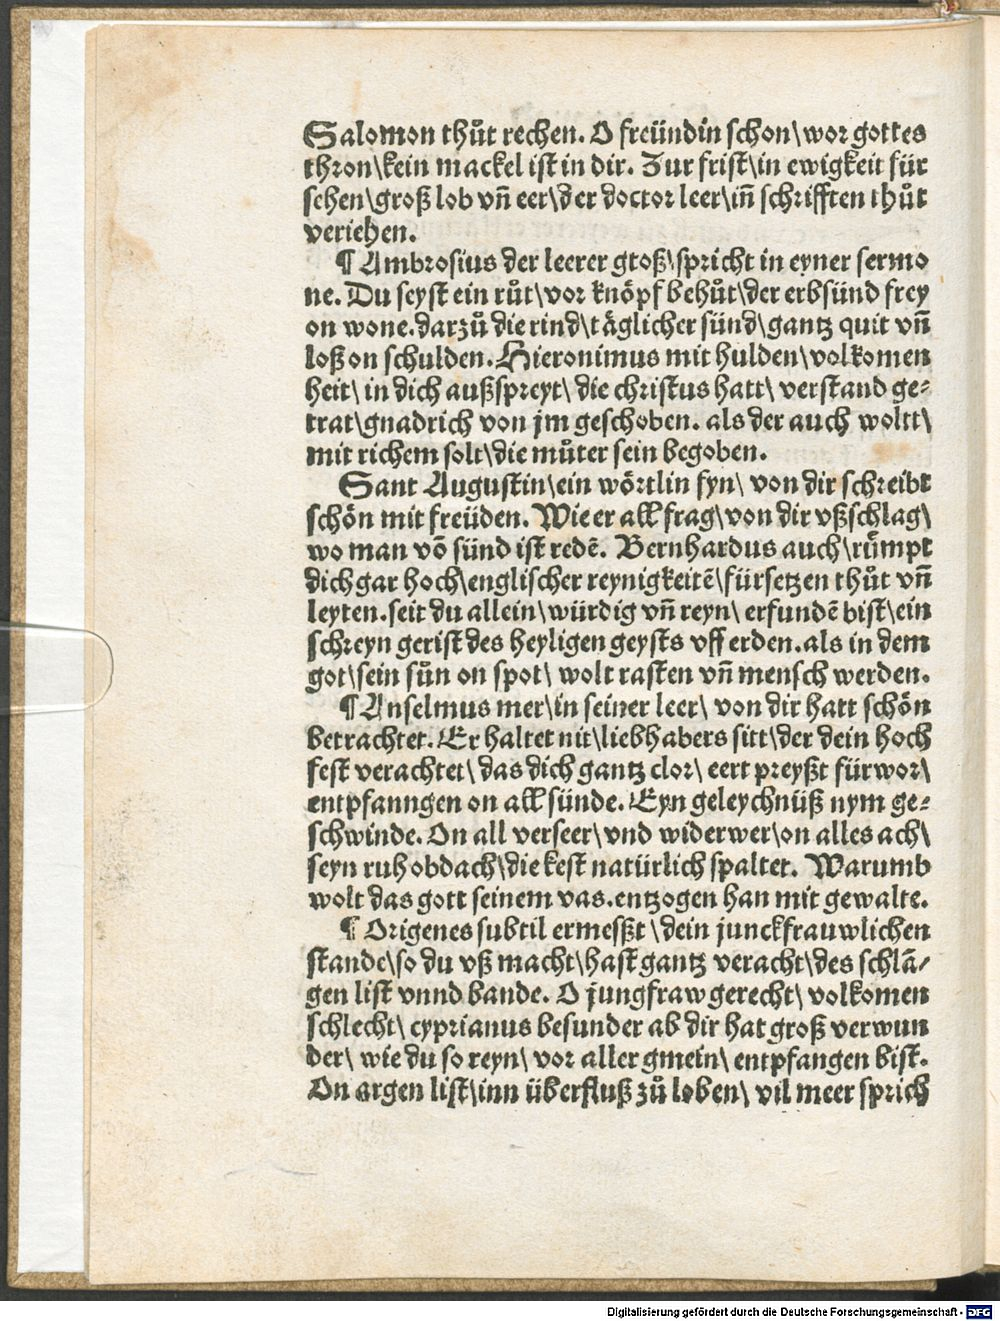 Salomon thůt rechen. O freündin schon\wor gottes
thron\kein mackel ist in dir. Zur frist\in ewigkeit für
sehen\groß lob vn̄ eer\der doctor leer\in̄ schrifften thůt
veriehen.
¶ Ambrosius der leerer groß\spricht in eyner sermo
ne. Du seyst ein růt\vor knöpf behůt\der erbsünd frey
on wone. darzů die rind\täglicher sünd\gantz quit vn̄
loß on schulden. Hieronimus mit hulden\volkomen
heit\ in dich außspreyt\ die christus hatt\ verstand ge⸗
trat\gnadrich von jm geschoben. als der auch woltt\
mit richem solt\die můter sein begoben.
Sant Augustin\ein wörtlin fyn\ von dir schreibt
schön mit freüden. Wie er all frag\von dir vßschlag\
wo man vō sünd ist redē. Bernhardus auch\růmpt
dich gar hoch\englischer reynigkeitē\fürsetzen thůt vn̄
leyten. seit du allein\würdig vn̄ reyn\ erfundē bist\ein
schreyn gerist des heyligen geysts vff erden. als in dem
got\sein sůn on spot\ wolt rasten vn̄ mensch werden.
¶ Anselmus mer\in seiner leer\ von dir hatt schön
betrachtet. Er haltet nit\liebhabers sitt\der dein hoch
fest verachtet\ das dich gantz clor\ eert preyßt fürwor\
entpfanngen on all sünde. Eyn geleychnüß nym ge⸗
schwinde. On all verseer\vnd widerwer\on alles ach\
seyn ruh obdach\die kest natürlich spaltet. Warumb
wolt das gott seinem vas. entzogen han mit gewalte.
¶ Origenes subtil ermesßt \dein junckfrauwlichen
stande\so du vß macht\hast gantz veracht\des schlā⸗
gen list vnnd bande. O jungfraw gerecht\ volkomen
schlecht\ cyprianus besunder ab dir hat groß verwun
der\ wie du so reyn\ vor aller gmein\ entpfangen bist.
On argen list\inn überfluß zů loben\ vil meer sprich
Digitalisierung gefördert durch die Deutsche Forschungsgemeinschaft - DFG